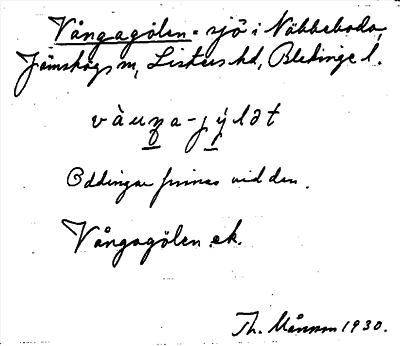 Vångagölen - sjö i Näbbeboda,
Jämshögs sn, Listers hd, Blekinge l.
vàuŋa-jýlət
Oddingar finnas vid den.
Vångagölen ek.
Th. Månsson 1930.